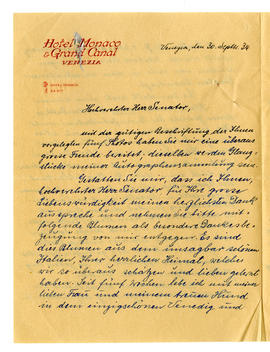 Hotel Monaco
& Grand Canal
VENEZIA
Venezia, den 30. Septbr. 34
Hochverehrter Herr Senator,
mit der gütigen Beschriftung der Ihnen
vorgelegten fünf Photos haben Sie mir eine überaus
grosse Freude bereitet; dieselben werden Glanz-
stücke meiner Autographensammlung sein.
Gestatten Sie mir, dass ich Ihnen,
hochverehrter Herr Senator für Ihre grosse
Liebenswürdigkeit meinen herzlichsten Dank
ausspreche und nehmen Sie bitte mit-
folgende Blumen als besondere Dankesbe-
zeugung von mir entgegen. Es sind
dies Blumen aus dem unsagbar schönen
Italien, Ihrer herrlichen Heimat, welches
wir so überaus schätzen und lieben gelernt
haben. Seit fünf Wochen lebe ich mit meiner
lieben Frau und meinem treuen Hund
in dem einzigschönen Venedig und